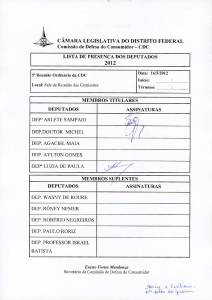 CÂMARA LEGISLATIVA DO DISTRITO FEDERAL
Comissão de Defesa do Consumidor – CDC
LISTA DE PRESENÇA DOS DEPUTADOS
2012
5ª Reunião Ordinária da CDC
Data: 16/5/2012
Início:
Local: Sala de Reunião das Comissões
Término:
MEMBROS TITULARES
DEPUTADOS ASSINATURAS
DEPª ARLETE SAMPAIO
DEP.DOUTOR MICHEL
DEP. AGACIEL MAIA
DEP. AYLTON GOMES
DEPª LUZIA DE PAULA
MEMBROS SUPLENTES
DEPUTADOS ASSINATURAS
DEP. WASNY DE ROURE
DEP. RÔNEY NEMER
DEP. ROBÉRIO NEGREIROS
DEP. PAULO RORIZ
DEP. PROFESSOR ISRAEL
BATISTA
Eneyas Fontes Mendonça
Secretário da Comissão de Defesa do Consumidor